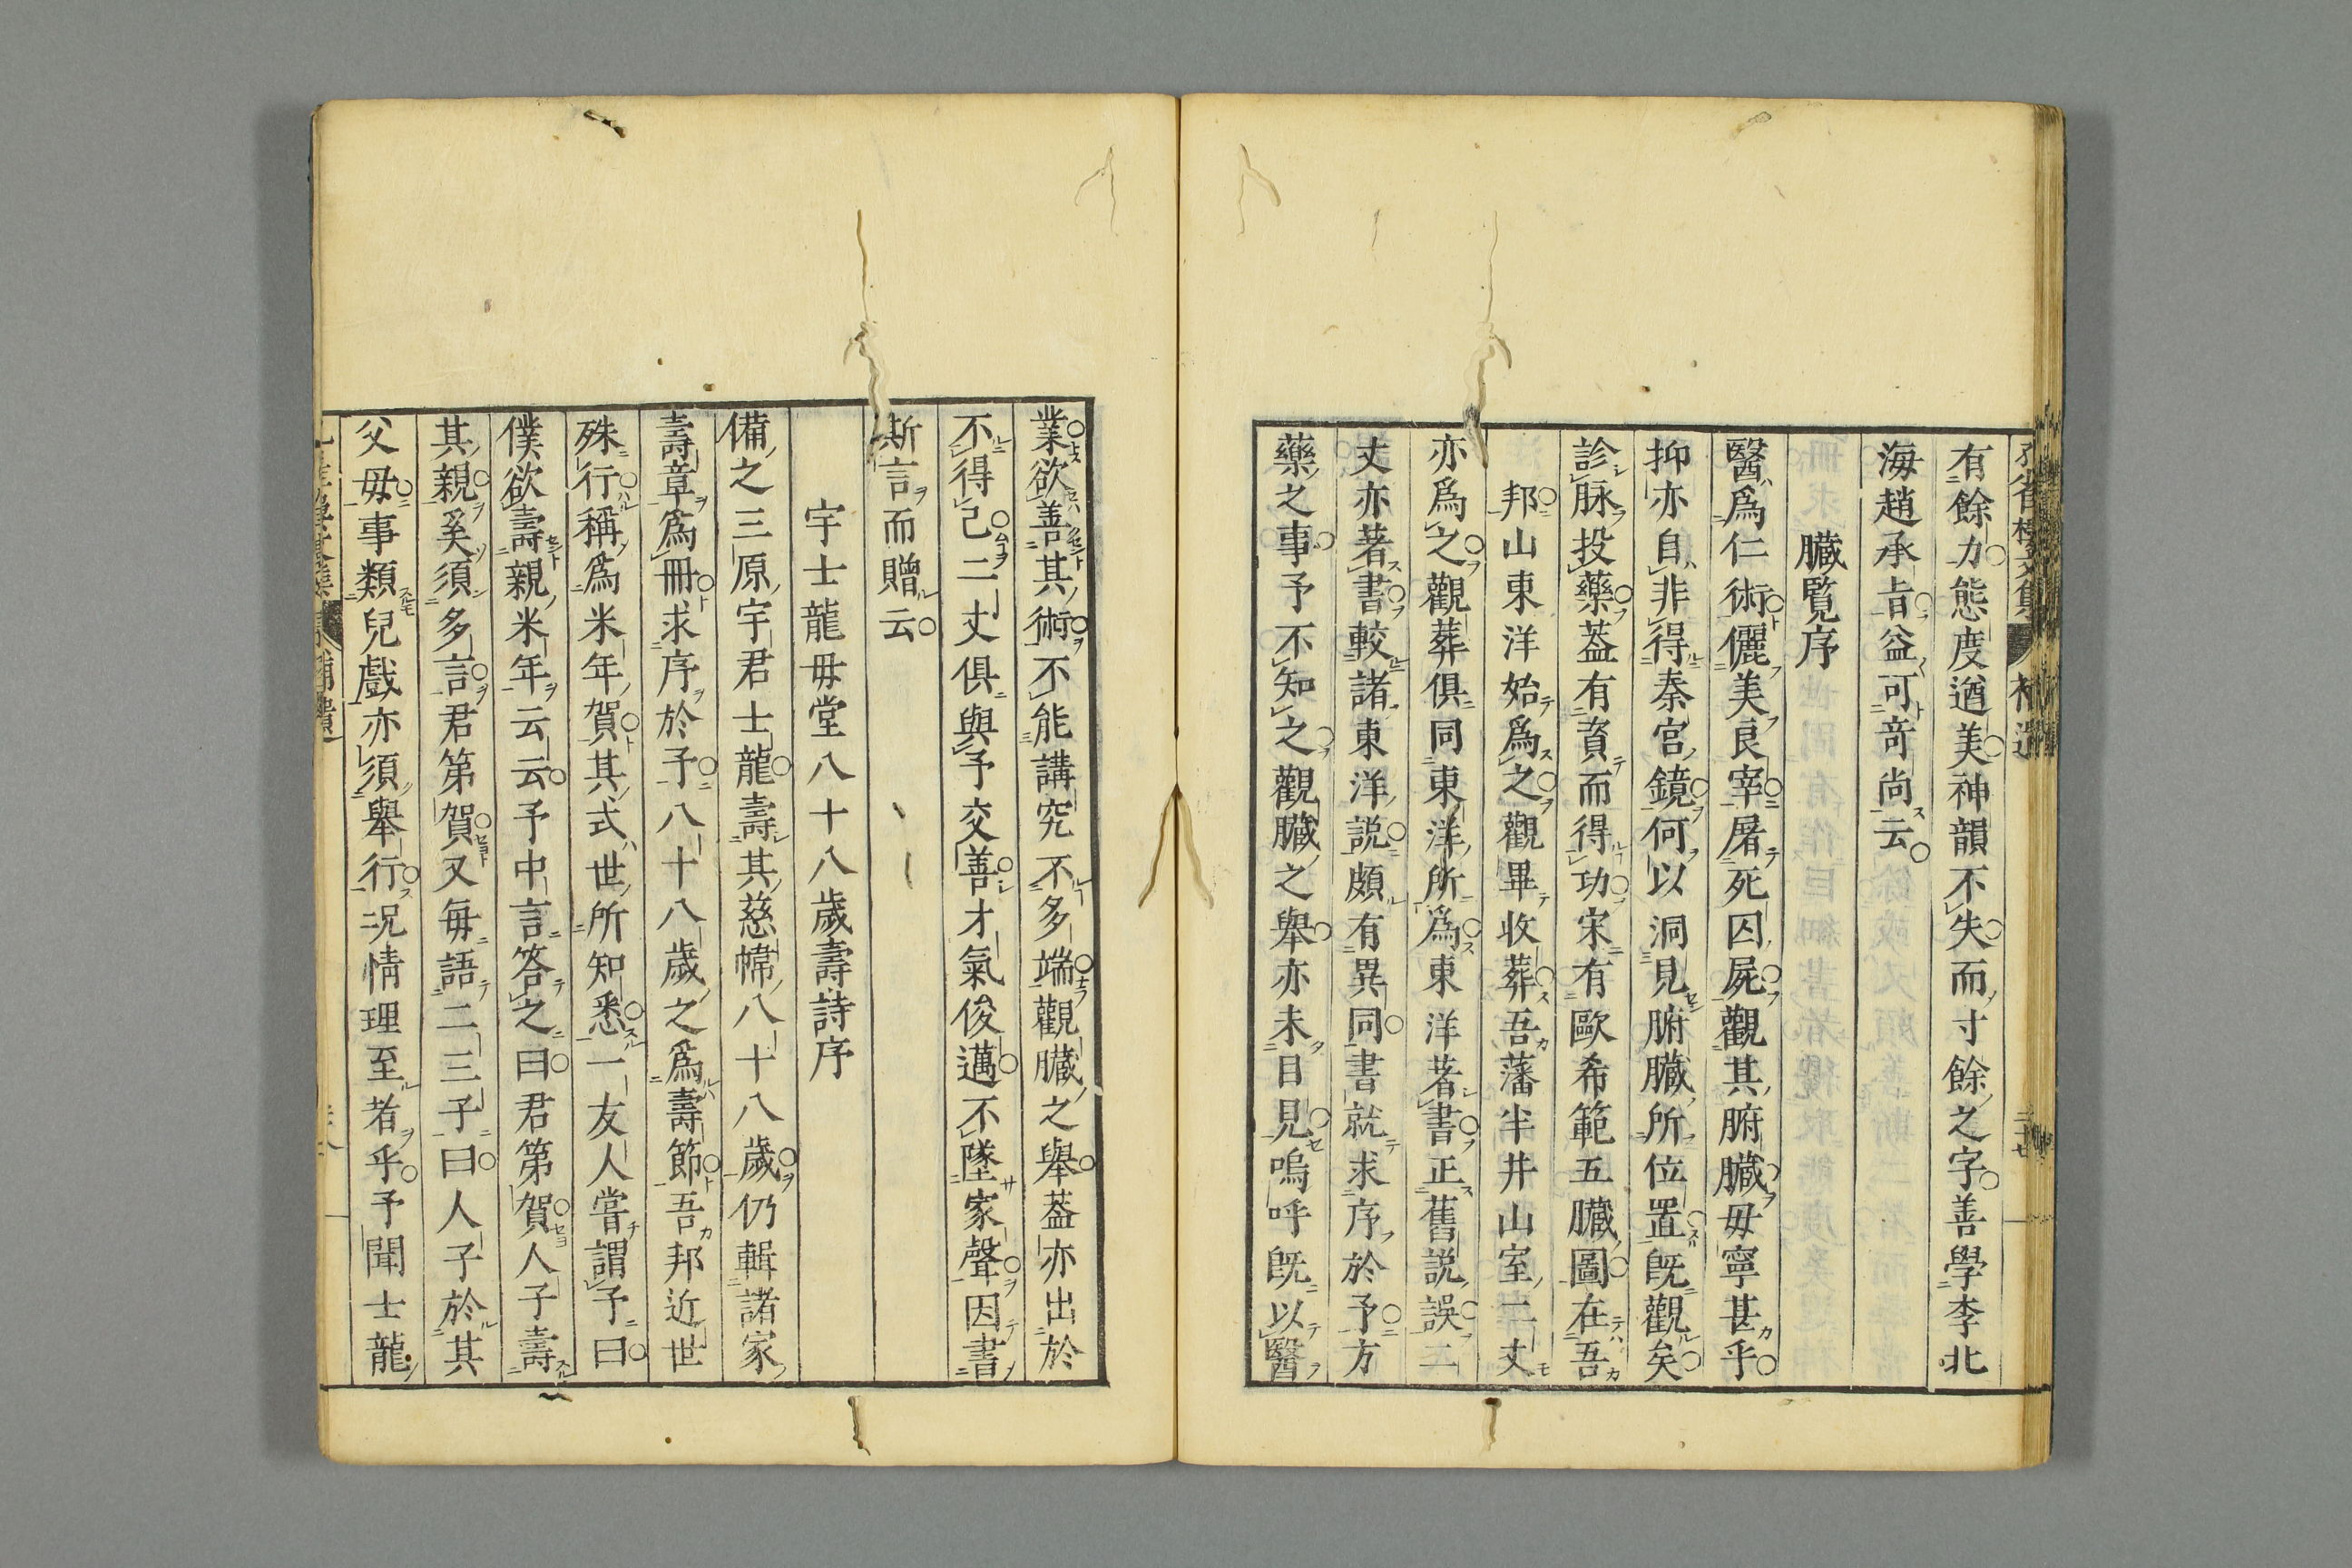 有餘力態度遒美神韻不失而寸餘之字善學李北
海趙承㫖益可竒尚云
臓覧序
醫為仁術儷美良宰屠死囚屍觀其腑臓毋寧甚乎
抑亦自非得秦宮鏡何以洞見腑臓所位置旣觀矣
診脉投藥葢有資而得功宋有歐希範五臓圖在吾
邦山東洋始爲之觀畢收葬吾藩半井山室二丈
亦爲之觀葬俱同東洋所爲東洋著書正舊説誤二
丈亦著書較諸東洋説頗有異同書就求序於予方
藥之事予不知之觀臓之舉亦未目見嗚呼旣以醫
業欲善其術不能講究不多端觀臓之舉葢亦出於
不得已二丈俱與予交善才氣俊邁不墜家聲因書
斯言而贈云
宇士龍毋堂八十八歲壽詩序
備之三原宇君士龍壽其慈幃八十八歲仍輯諸家
壽章爲冊求序於予八十八歲之爲壽節吾邦近世
殊行稱爲米年賀其式世所知悉一友人嘗謂予曰
僕欲壽親米年云云予中言答之曰君第賀人子壽
其親奚須多言君第賀又每語二三子曰人子於其
父毋事類兒戲亦須舉行况情理至者乎予聞士龍